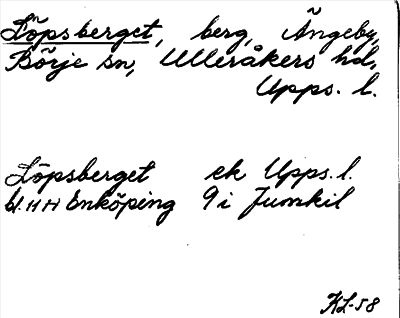 Löpsberget, berg, Ängeby,
Börje sn, Ulleråkers hd,
Upps. l.
Löpsberget ek Upps. l.
bl. HH Enköping 9 i Jumkil
KL-58